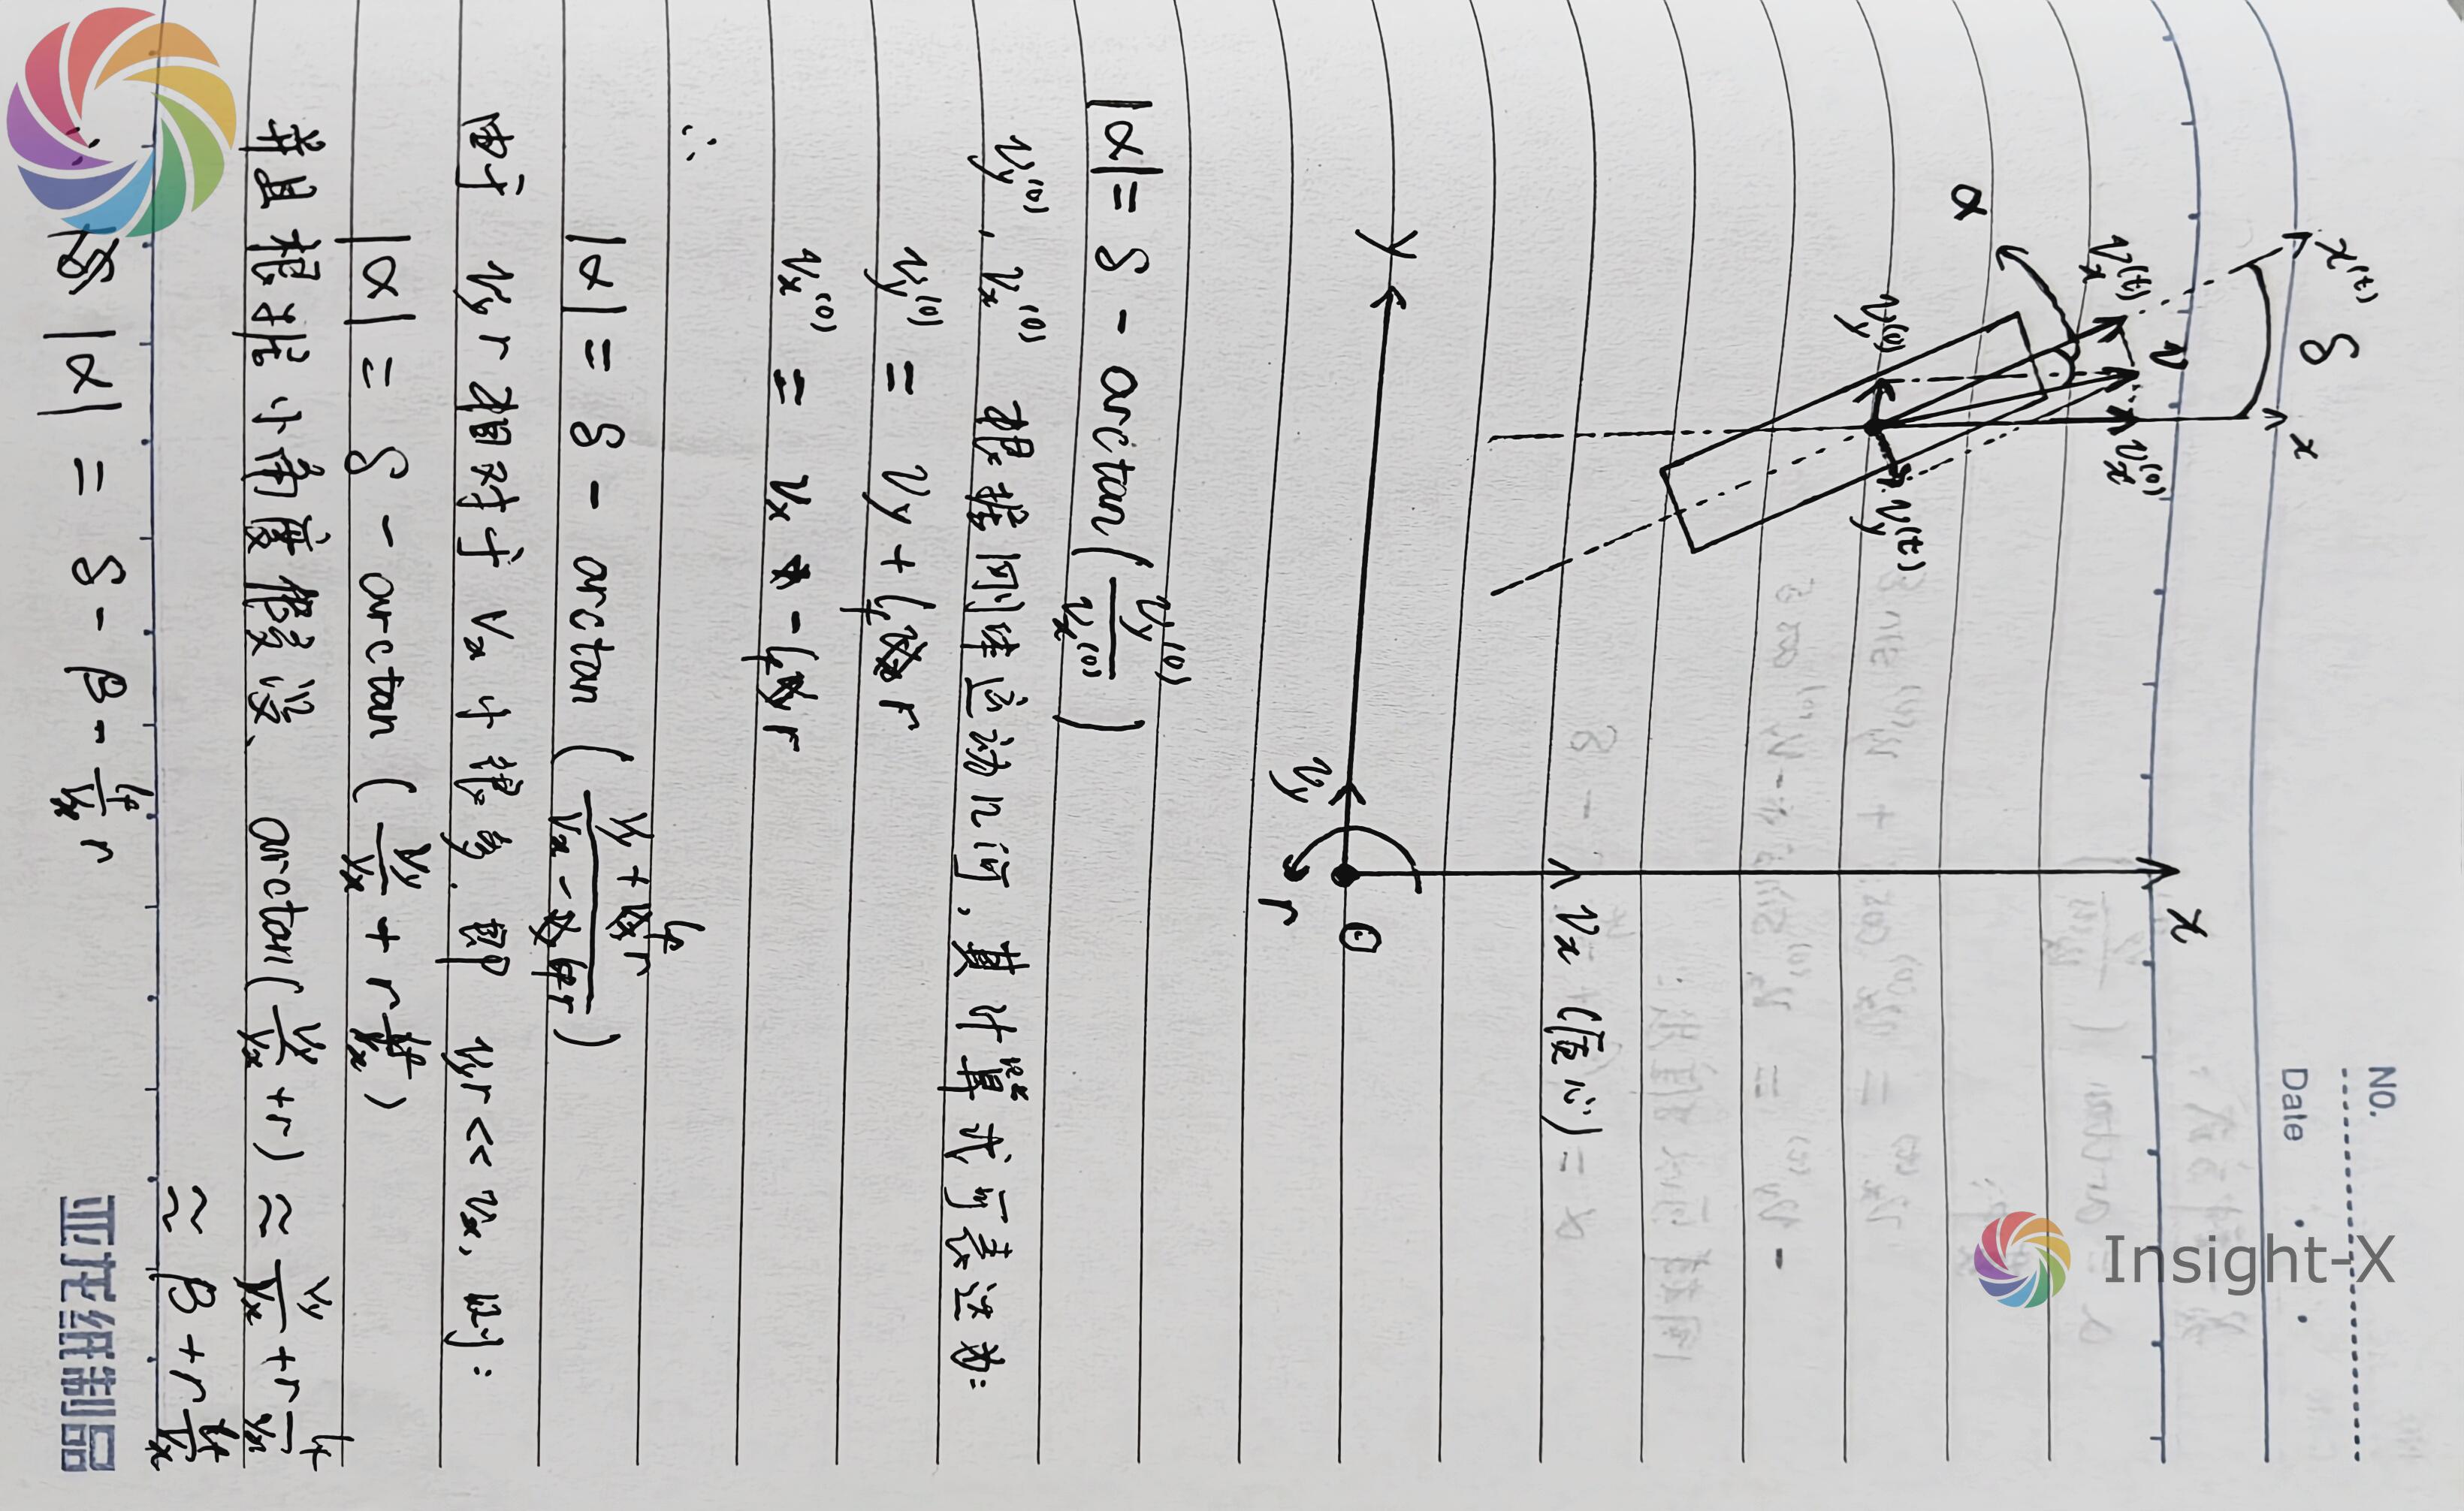 NO.
Date
x^(t)
δ
x
v_x^(t)
v
v_x^(0)
α
v_y^(0)
v_y^(t)
x
v_x (质心)
y
v_y
r
O
|α| = δ - arctan( v_y^(0) / v_x^(0) )
v_y^(0), v_x^(0) 根据刚性运动几何,其计算式可表达为:
v_y^(0) = v_y + l_f r
v_x^(0) = v_x - l_f r
∴
|α| = δ - arctan ( (v_y + l_f r) / (v_x - l_f r) )
由于 v_y r 相对于 v_x 十很多,即 v_y r << v_x, 则:
|α| = δ - arctan ( v_y/v_x + r l_f/v_x )
并且根据小角度假设、 arctan( v_y/v_x + r ) ≈ v_y/v_x + r l_f/v_x
≈ β + r l_f/v_x
∴ |α| = δ - β - l_f/v_x r
亚龙纸制品
Insight-X